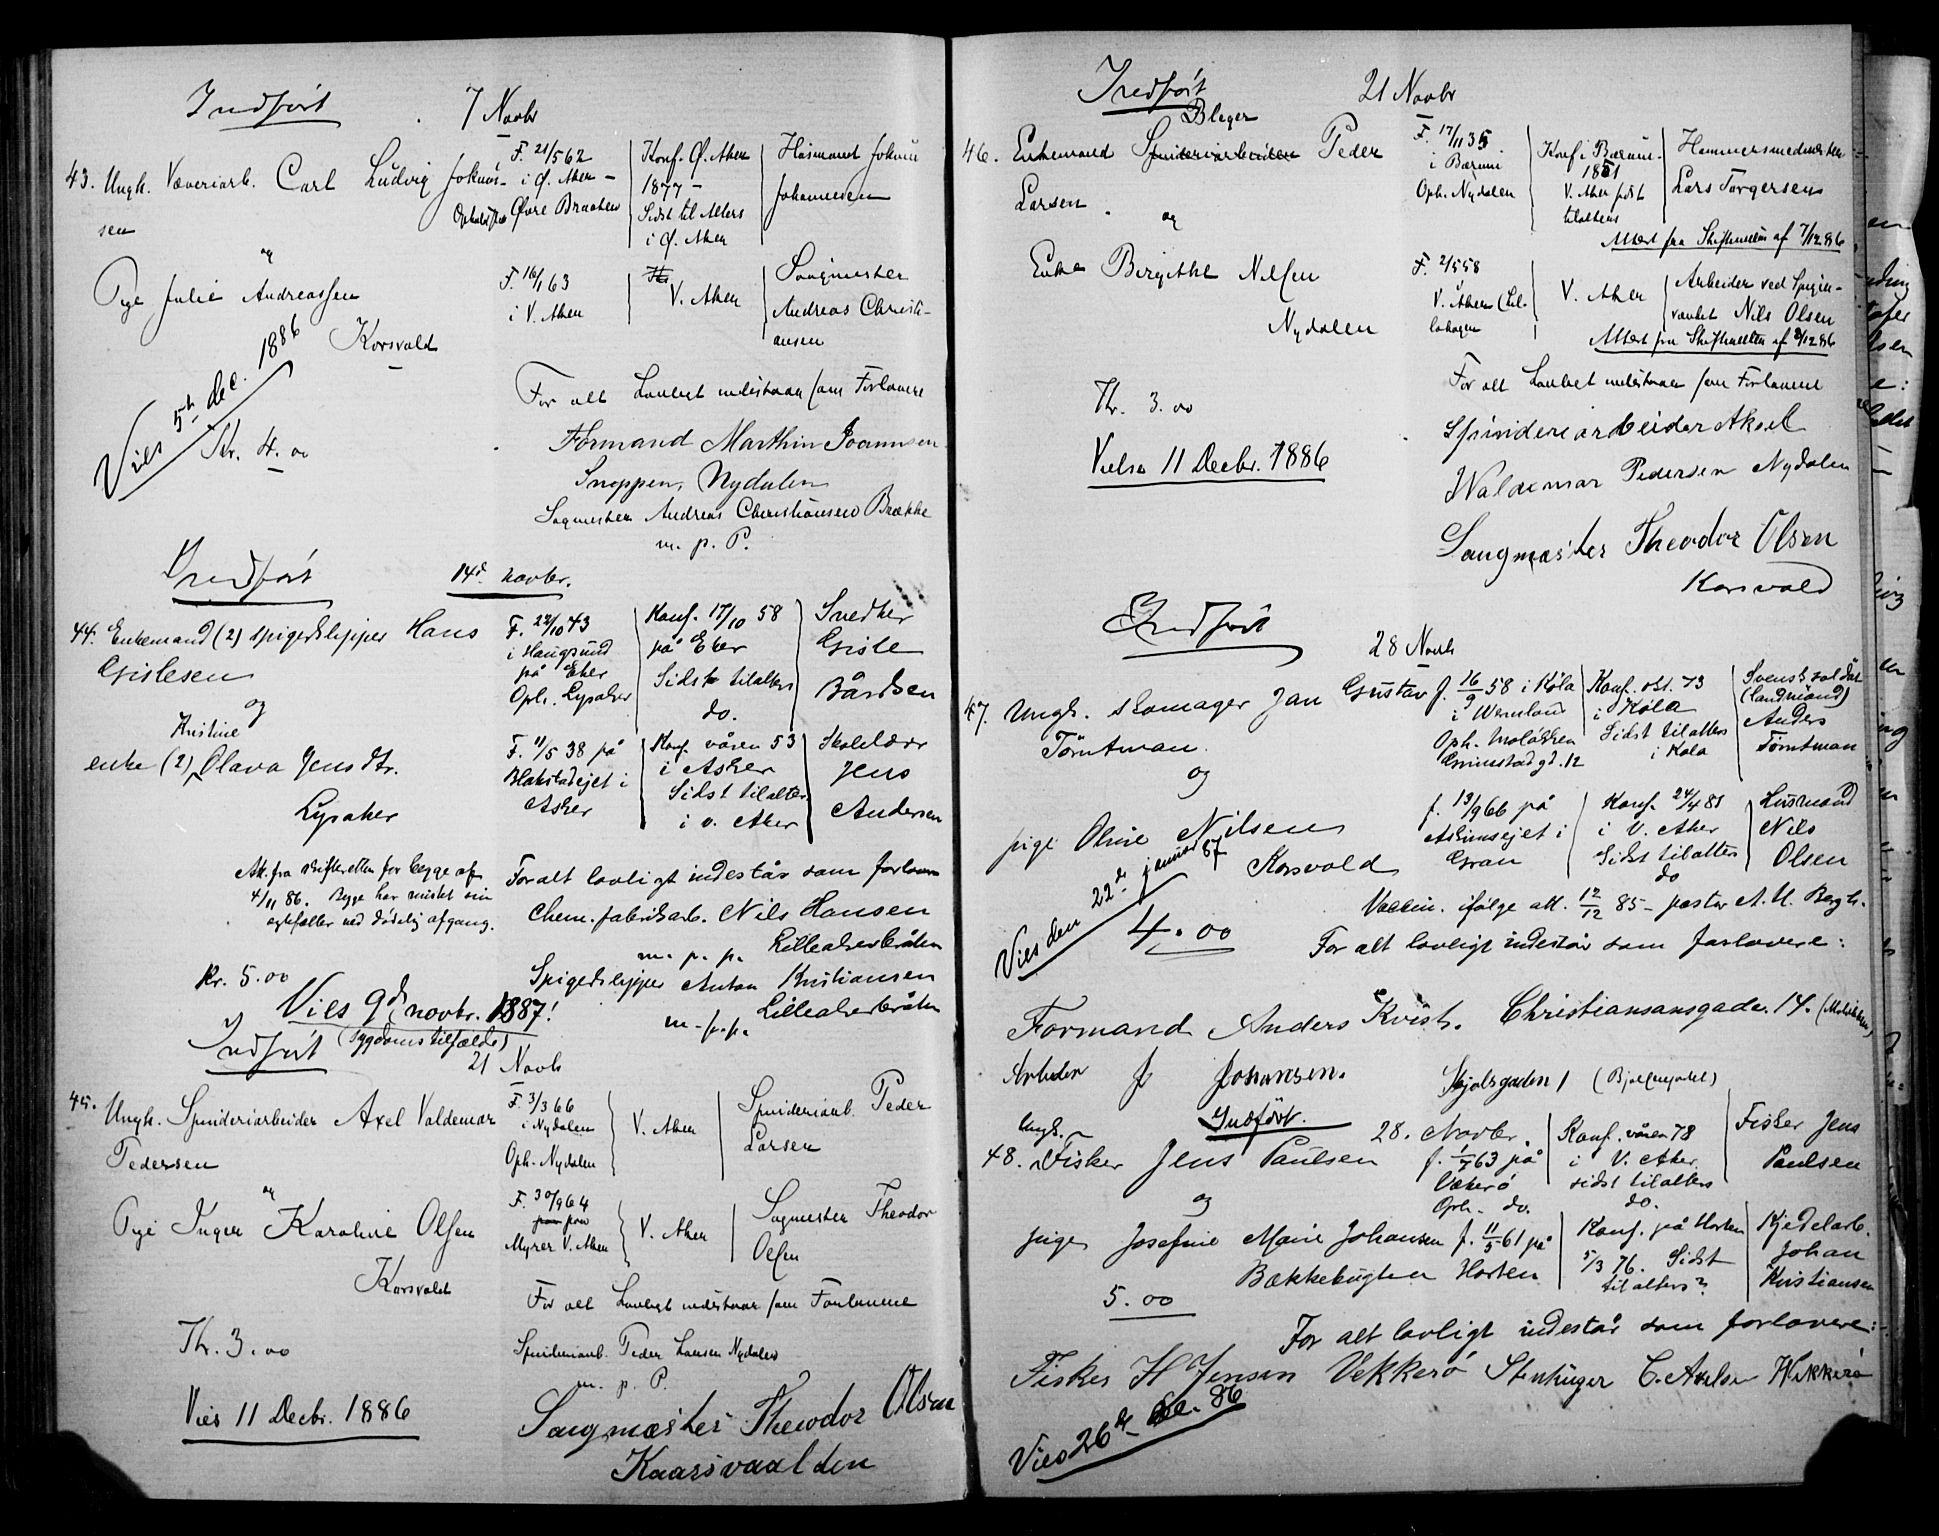 Indført
7 Novbr
43. Ungk. Væveriarb. Carl Ludvig Johans-
sen
F. 21/5 62
i Ø. Aker –
Opholdssted Øvre Braaten
Konf. Ø. Aker
1877 –
Sidst til Alters
i Ø. Aker
Husmand Johan
Johannesen
og
Pige Julie Andreassen
Korsvold
F. 16/1 63
i V. Aker
V. Aker
Saugmester
Andreas Christi-
ansen
Vies 5te dec. 1886
Kr. 4.00
For alt Lovligt indestaar som Forlovere
Formand Marthin Joannsen
Snoppen, Nydalen
Sagmester Andreas Christiansen Brække
m. p. P.
Indført
14d. novbr.
44. Enkemand (2) spigerslipper Hans
Gislesen
F. 22/10 43
i Haugsund
på Eker
Oph. Lysaker
Konf. 17/10 58
på Eker
Sidst tilalters
do.
Snedker
Gisle
Bårdsen
og
Kristine
enke (2) Olava Jensdtr.
Lysaker
F. 11/5 38 på
Blakstadejet i
Asker
Konf. våren 53
i Asker
Sidst tilalters
i v. Aker
Skolelærer
Jens
Andersen
Att. fra skifteretten for begge af
4/11 86. Begge har mistet sin
ægtefælle ved dødelig afgang.
For alt lovligt indestår som forlovere
Chem. fabrikarb. Nils Hansen
m. p. p. Lilleakerbråten
Spigerslipper Anton Kristiansen
m. p. p. Lilleakerbråten
Kr. 5.00
Vies 9d novbr. 1887!
(Sygdomstilfælde)
Indført
21 Novb
45. Ungk. Spinderiarbeider Axel Valdemar
Pedersen
F. 3/3 66
i Nydalen
Oph. Nydalen
V. Aker
Spinderiarb. Peder
Larsen
og
Pige Inger Karoline Olsen
Korsvold
F. 30/9 64
paa
Myrer V. Aker
V. Aker
Sagmester Theodor
Olsen
For alt Lovligt indestaar som Forlovere
Kr. 3.00
Spinderiarb. Peder Larsen Nydalen
m. p. P.
Vies 11 Decbr. 1886
Saugmæster Theodor Olsen
Kaarsvaalden
Indført
21 Novbr
Bleger
46. Enkemand Spinderiarbeider Peder
Larsen
F. 17/11 35
i Bærum
Oph. Nydalen
Konf. i Bærum
1851
V. Aker sidst
tilalters
Hammersmedmester
Lars Torgersen
Attest fra Skifteretten af 7/12 86
og
Enke Birgithe Nilsen
Nydalen
F. 2/5 58
V. Aker (Lil-
lohagen
V. Aker
Arbeider ved Spiger-
værket Nils Olsen
Attest fra Skifteretten af 8/12 86
For alt Lovligt indestaar som Forlovere
Kr. 3.00
Spinderiarbeider Aksel
Waldemar Pedersen Nydalen
Vielse 11 Decbr. 1886
Saugmæster Theodor Olsen
Korsvold
Indført
28 Novb
47. Ungk. skomager Jan Gustav
Törntman.
f. 16/9 58 i Köla
i Wermland
Oph. Moløkken
Grimstadgd. 12
Konf. okt. 73
i Köla
Sidst tilalters
i Köla
Svensk soldat
(Landmand)
Anders
Törntman
og
pige Oline Nilsen
Korsvold
f. 19/9 66 på
Askimsejet i
Gran
Konf. 24/4 81
i V. Aker
Sidst tilalters
do
Husmand
Nils
Olsen
Vies den 22de januar 87
Vaccin. ifølge att. 12/12 85 – pastor A. U. Bergh.
4.00
For alt lovligt indestår som forlovere:
Formand Anders Kvist. Christiansansgaden 14.
Arbeider J Johansen. Skjolsgaden 1
Indført.
28. Novbr.
Ungk.
48. Fisker Jens Paulsen
f. 1/7 63 på
Vækerö
Oph. do.
Konf. våren 78
i V. Aker
sidst tilalters
do.
Fisker Jens
Paulsen
og
pige Josefine Marie Johansen f. 11/5 61 på
Bækkebugten Horten
Konf. på Horten
5/3 76. Sidst
tilalters?
Kjedelarb.
Johan
Kristiansen
5.00
For alt lovligt indestår som forlovere:
Fisker H Jensen Vekkerö Stenhuger C. Axelsen Wækkerö
Vies 26de dec. 86